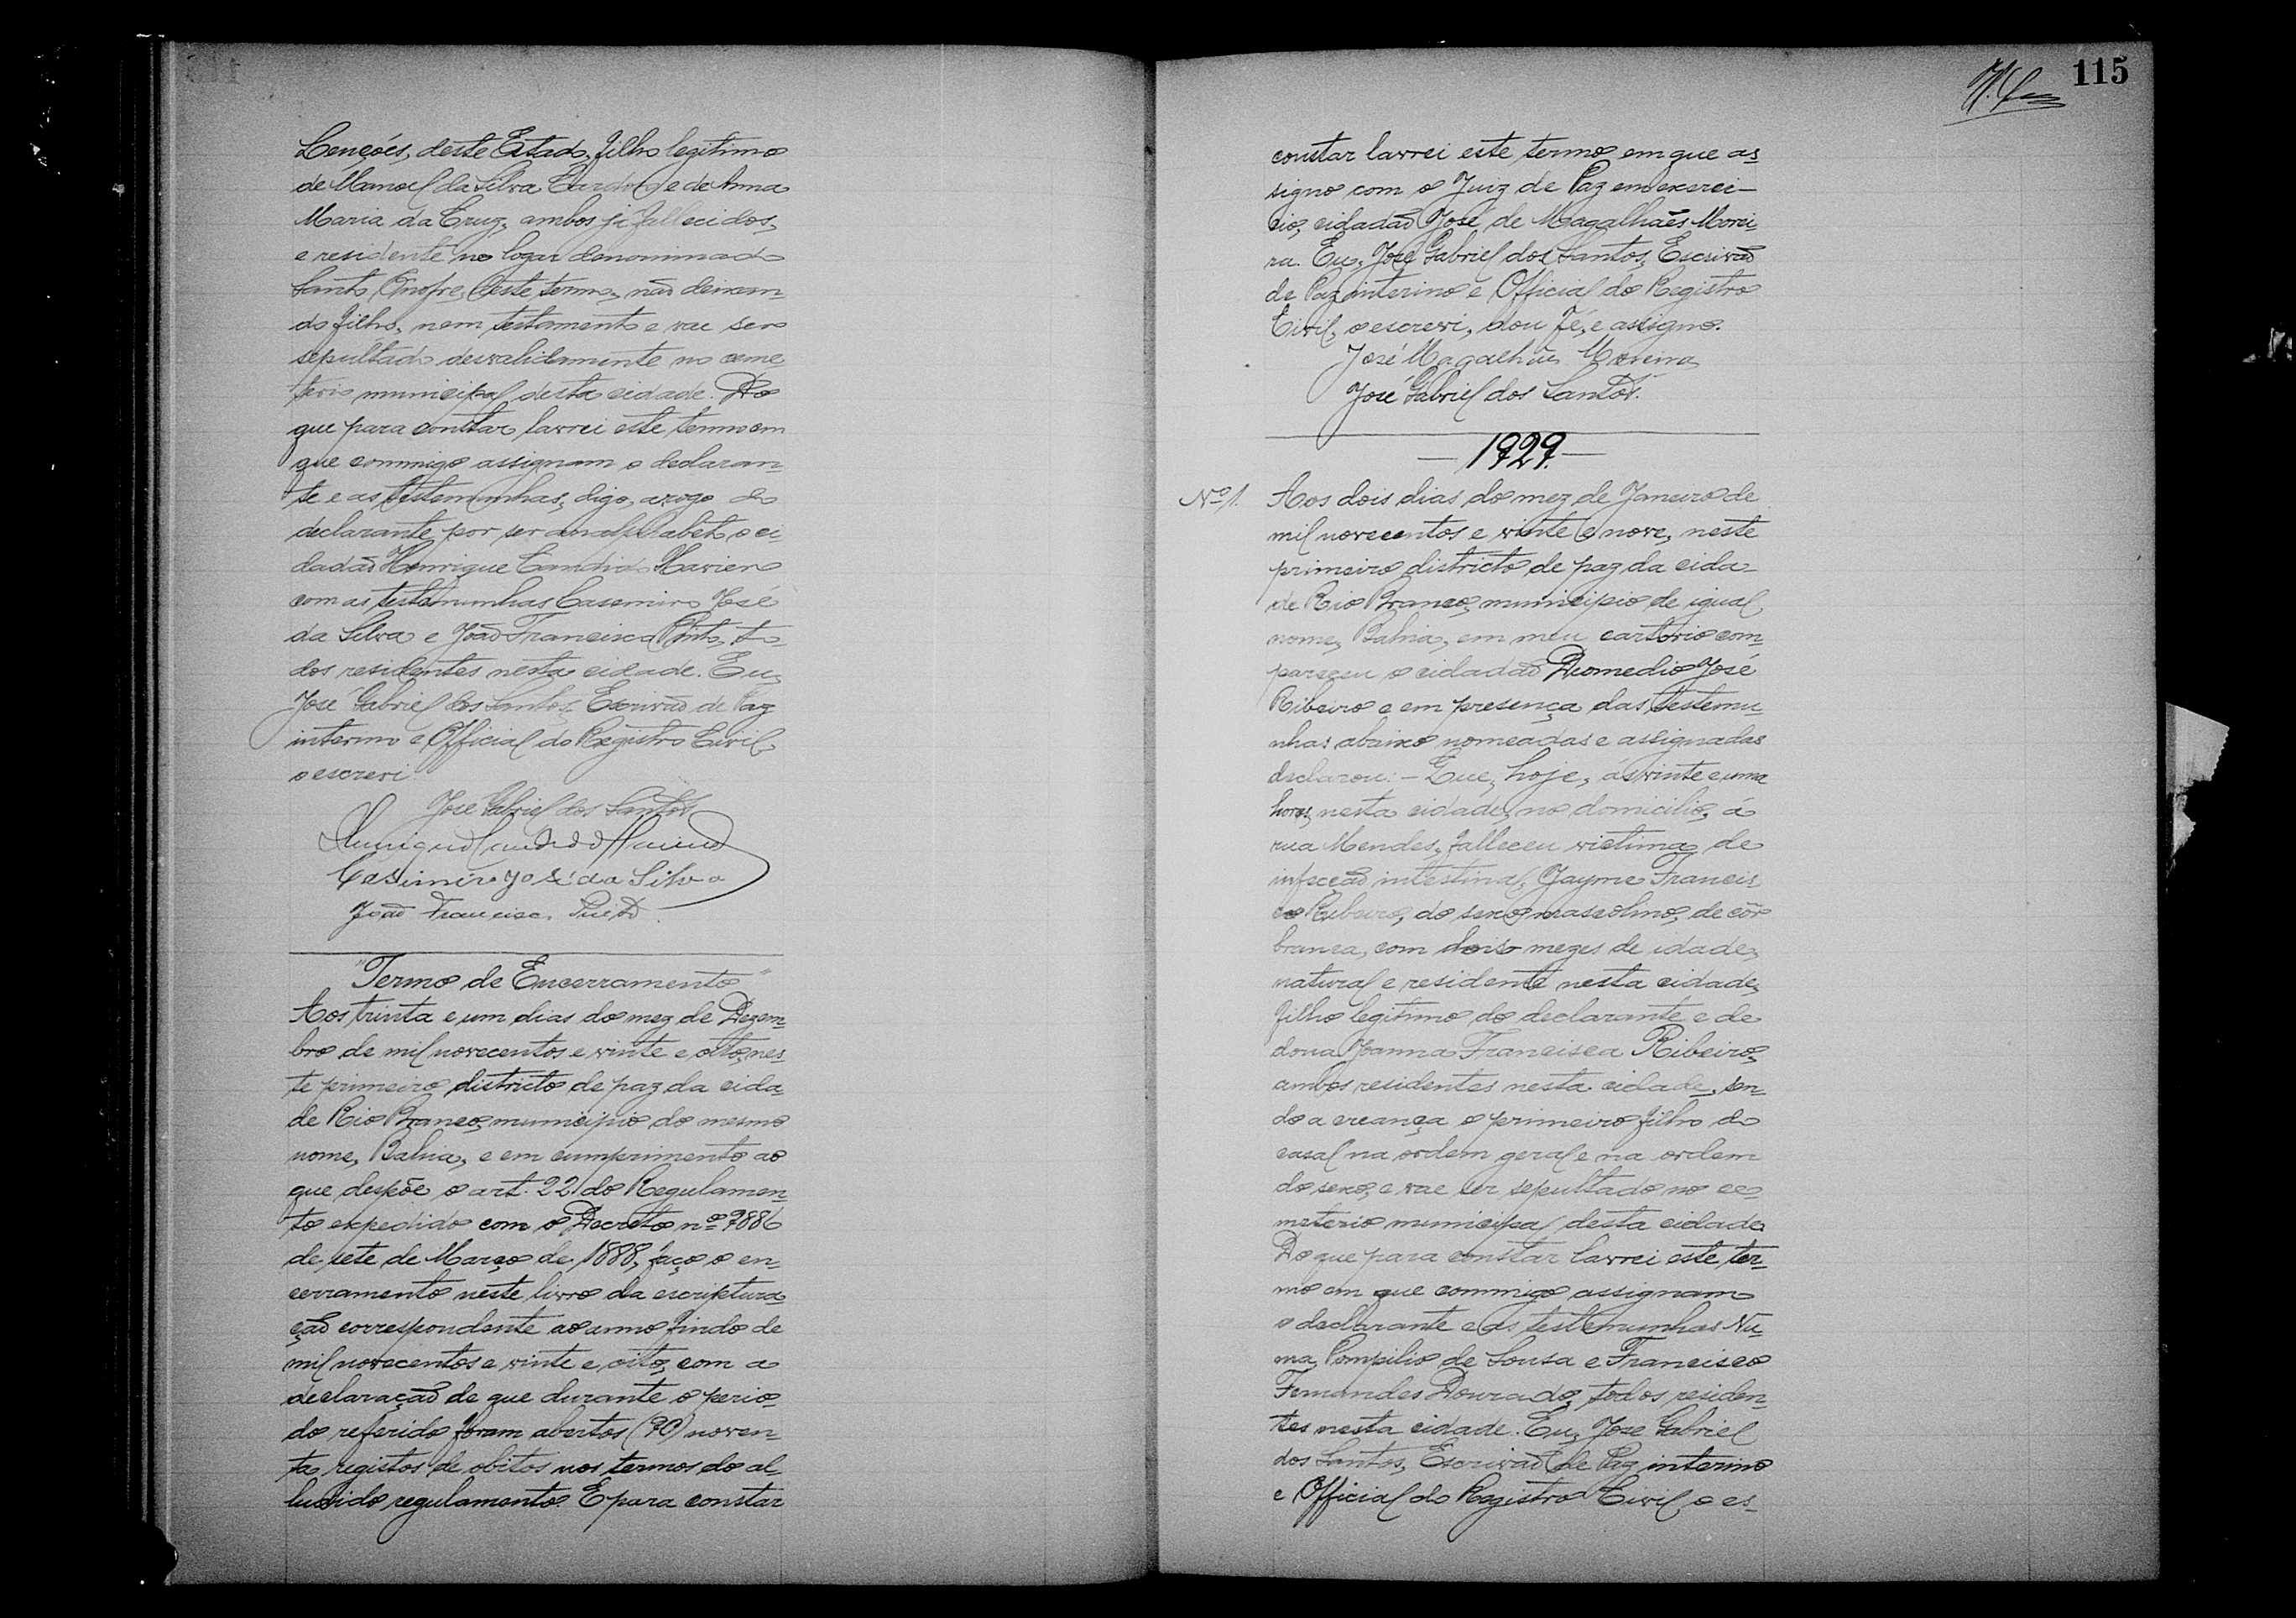 Lençóes, deste Estado, filho legitimo
de Manoel da Silva Cardoso e de Anna
Maria da Cruz, ambos já fallecidos,
e residente no logar denominado
Santo Onofre, deste termo, não deixan-
do filho, nem testamento e vae ser
sepultado desvalidamente no ceme
terio municipal desta cidade. Do
que para constar lavrei este termo em
que commigo assignam o declaran-
te e as testemunhas, digo, a rogo do
declarante por ser analphabeto o ci-
dadão Henrique Candido Xavier
com as testemunhas Casemiro José
da Silva e João Francisco Pinto, to-
dos residentes nesta cidade. Eu,
José Gabriel dos Santos, Escrivão de Paz
interino e Official do Registro Civil,
o escrevi
José Gabriel dos Santos
Henrique Candido Xavier
Casimiro José da Silva
João Francisco Pinto
"Termo de Encerramento"
Aos trinta e um dias do mez de Dezem-
bro de mil novecentos e vinte e oito, nes-
te primeiro districto de paz da cida-
de Rio Branco, municipio do mesmo
nome, Bahia, e em cumprimento ao
que despõe o art. 22 do Regulamen-
to expedido com o Decreto nº 9886
de sete de Março de 1888, faço o en-
cerramento neste livro da escriptura-
ção correspondente ao anno findo de
mil novecentos e vinte e oito, com a
declaração de que durante o perio-
do referido foram abertos (90) noven-
ta registos de obitos nos termos do al-
ludido regulamento. E para constar
115
constar lavrei este termo em que as-
signo com o Juiz de Paz em exerci-
cio, cidadão José de Magalhães Morei-
ra. Eu, José Gabriel dos Santos, Escrivão
de Paz interino e Official do Registro
Civil, o escrevi, dou fé, e assigno.
José Magalhães Moreira
José Gabriel dos Santos.
— 1929. —
Nº 1. Aos dois dias do mez de Janeiro de
mil novecentos e vinte e nove, neste
primeiro districto de paz da cida-
de Rio Branco, municipio de igual
nome, Bahia, em meu cartorio com-
pareceu o cidadão Diomedio José
Ribeiro e em presença das testemu-
nhas abaixo nomeadas e assignadas
declarou: - Que, hoje, ás vinte e uma
horas, nesta cidade, no domicilio, á
rua Mendes, falleceu victima de
infecção intestinal, Jayme Francis
co Ribeiro, do sexo masculino, de côr
branca, com dois mezes de idade,
natural e residente nesta cidade,
filho legitimo do declarante e de
dona Joanna Francisca Ribeiro,
ambos residentes nesta cidade, sen-
do a creança o primeiro filho do
casal na ordem geral e na ordem
do sexo, e vae ser sepultado no ce-
meterio municipal desta cidade
Do que para constar lavrei este ter-
mo em que commigo assignam
o declarante e as testemunhas Nu-
ma Pompilio de Sousa e Francisco
Fernandes Dourado, todos residen-
tes nesta cidade. Eu, José Gabriel
dos Santos, Escrivão de Paz interino
e Official do Registro Civil o es-